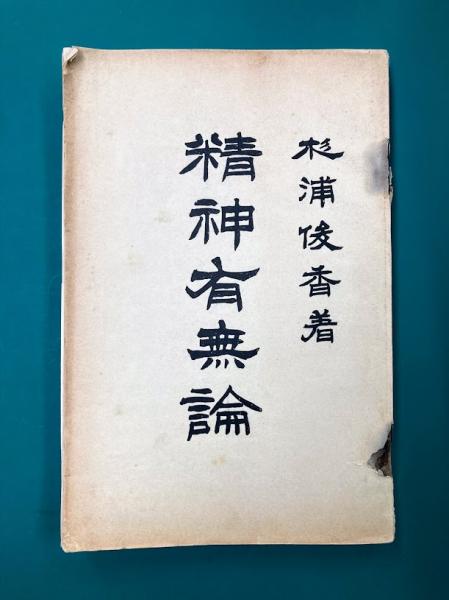 杉浦俊香着
精神有無論